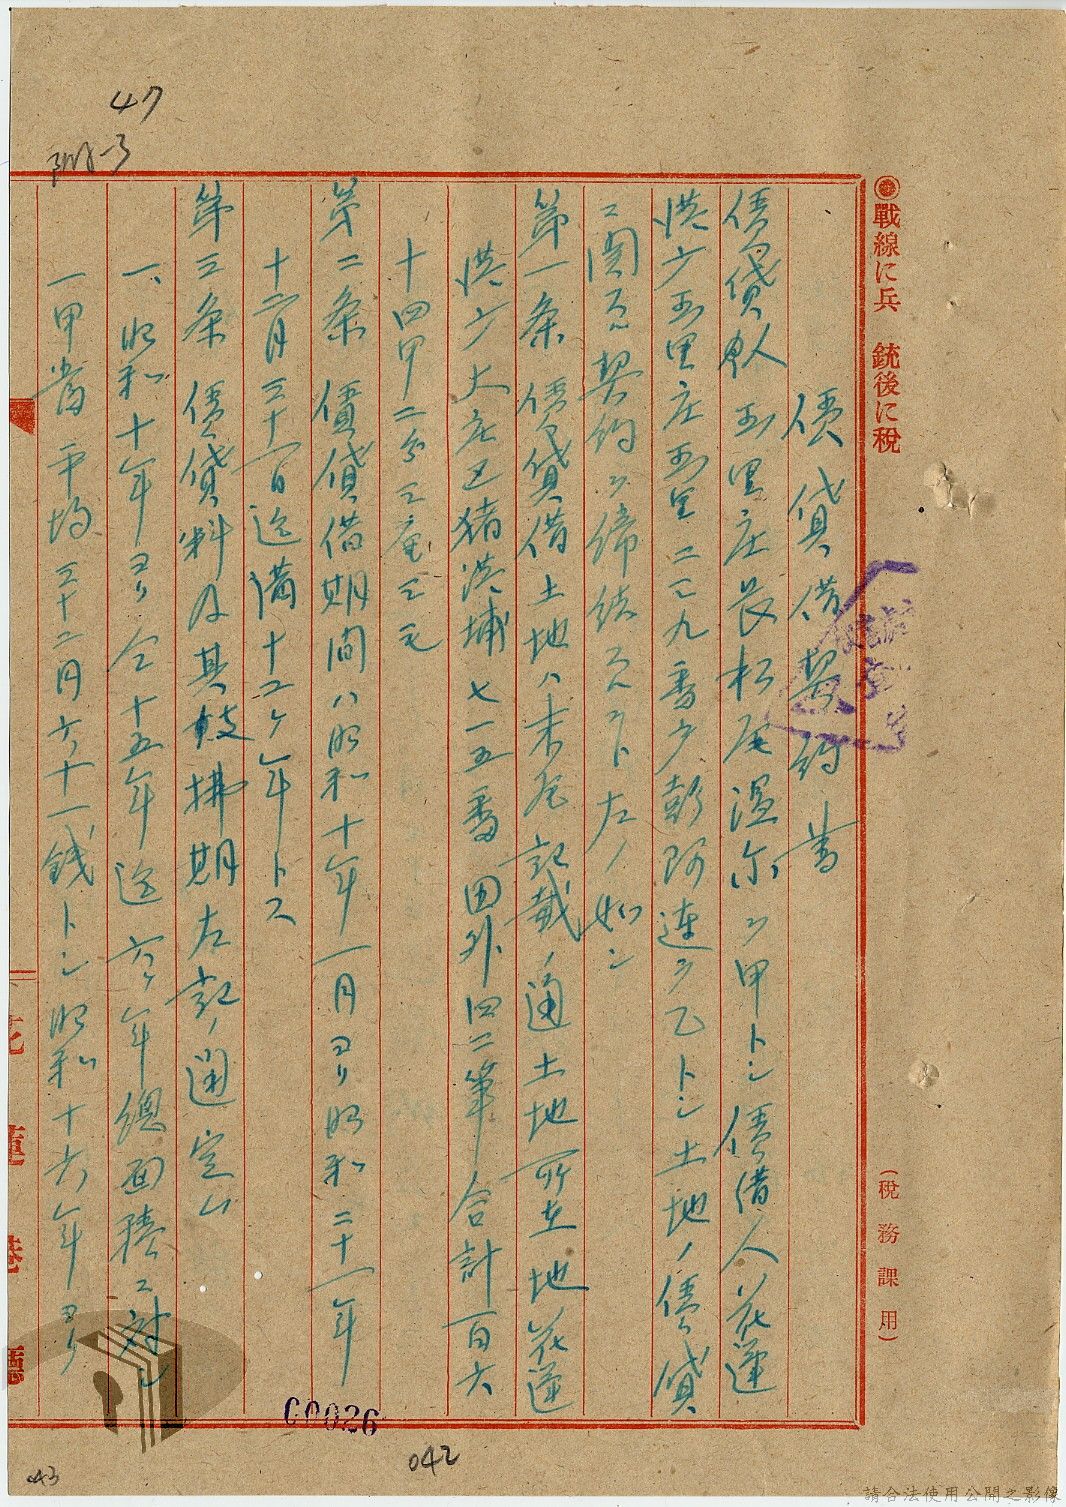 47
附-3
戰線に兵 銃後に税
(税務課用)
債貸借契約書
債貸人 玉里庄長松尾温尓ヲ甲トシ債借人花蓮
港庁玉里庄玉里二三九番戸彭阿連ヲ乙トシ土地ノ債貸
ニ関スル契約ヲ締結スルコト左ノ如シ
第一条 債貸借土地ハ末尾記載ノ通土地所在地花蓮
港庁大庄巴猪港埔七一五番田外四二筆合計百六
十四甲二分三厘三毛
第二条 債貸借期間ハ昭和十年一月ヨリ昭和二十一年
十二月三十一日迄満十二ヶ年トス
第三条 債貸料及其支拂期左記ノ通定ム
一、昭和十年ヨリ仝十五年迄六ヶ年總面積ニ対シ
一甲當平均三十二円六十一銭トシ昭和十六年ヨリ
花蓮港廳
00026
042
043
請合法使用公開之影像